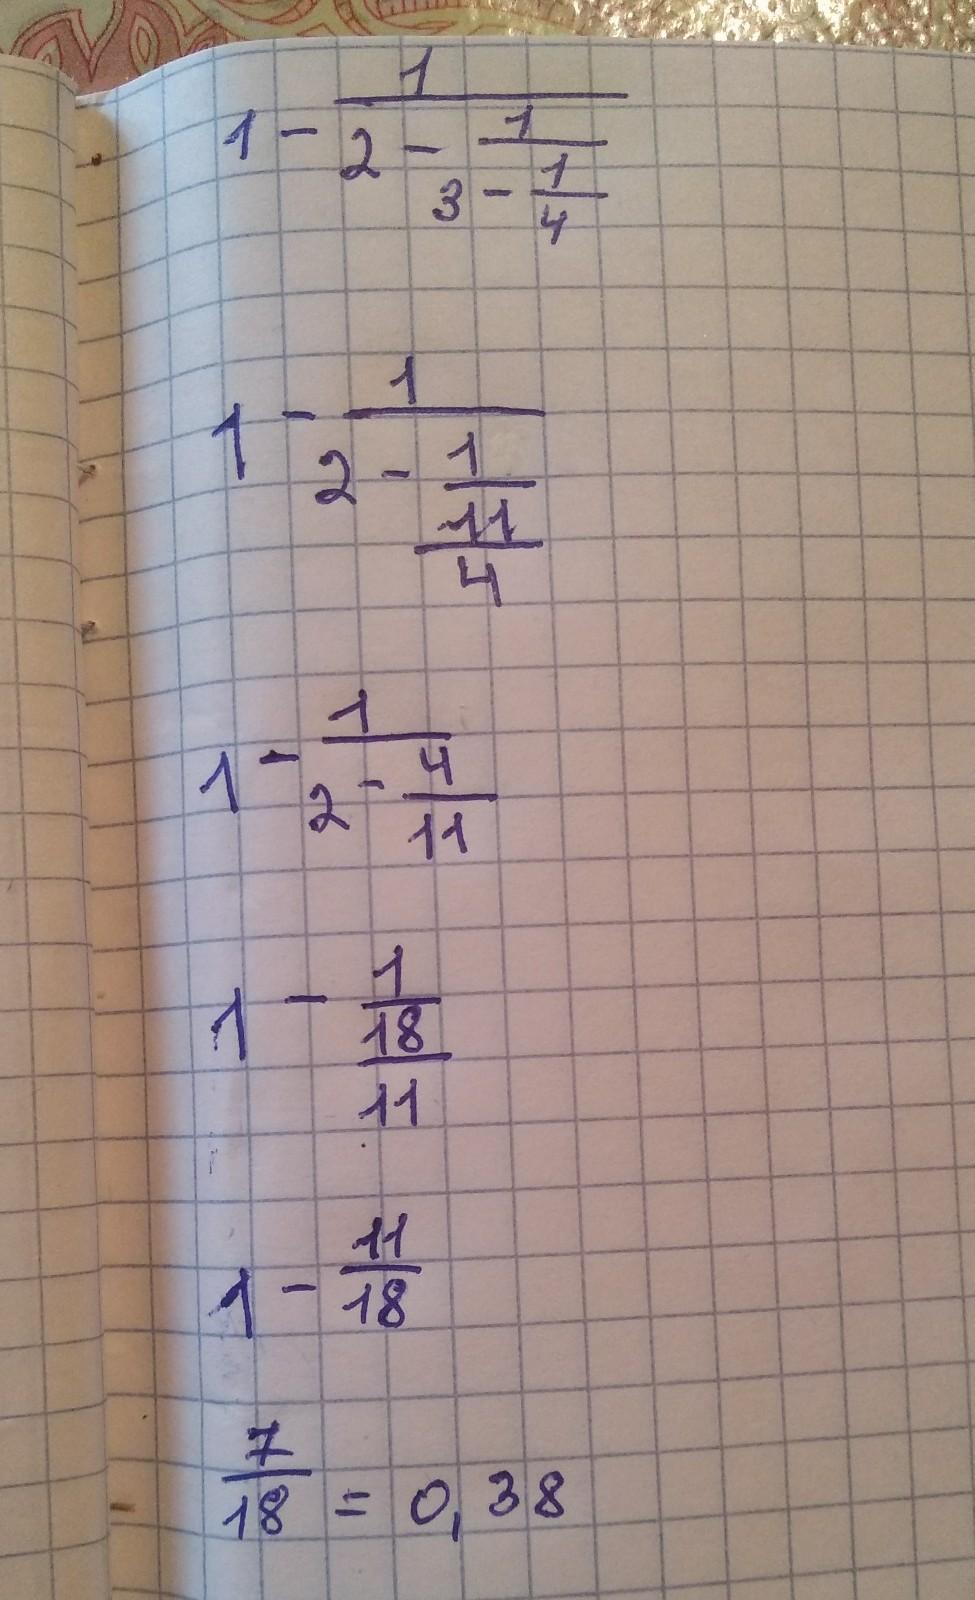 1 - 1/(2 - 1/(3 - 1/4))
1 - 1/(2 - 1/(11/4))
1 - 1/(2 - 4/11)
1 - 1/(18/11)
1 - 11/18
7/18 = 0,38